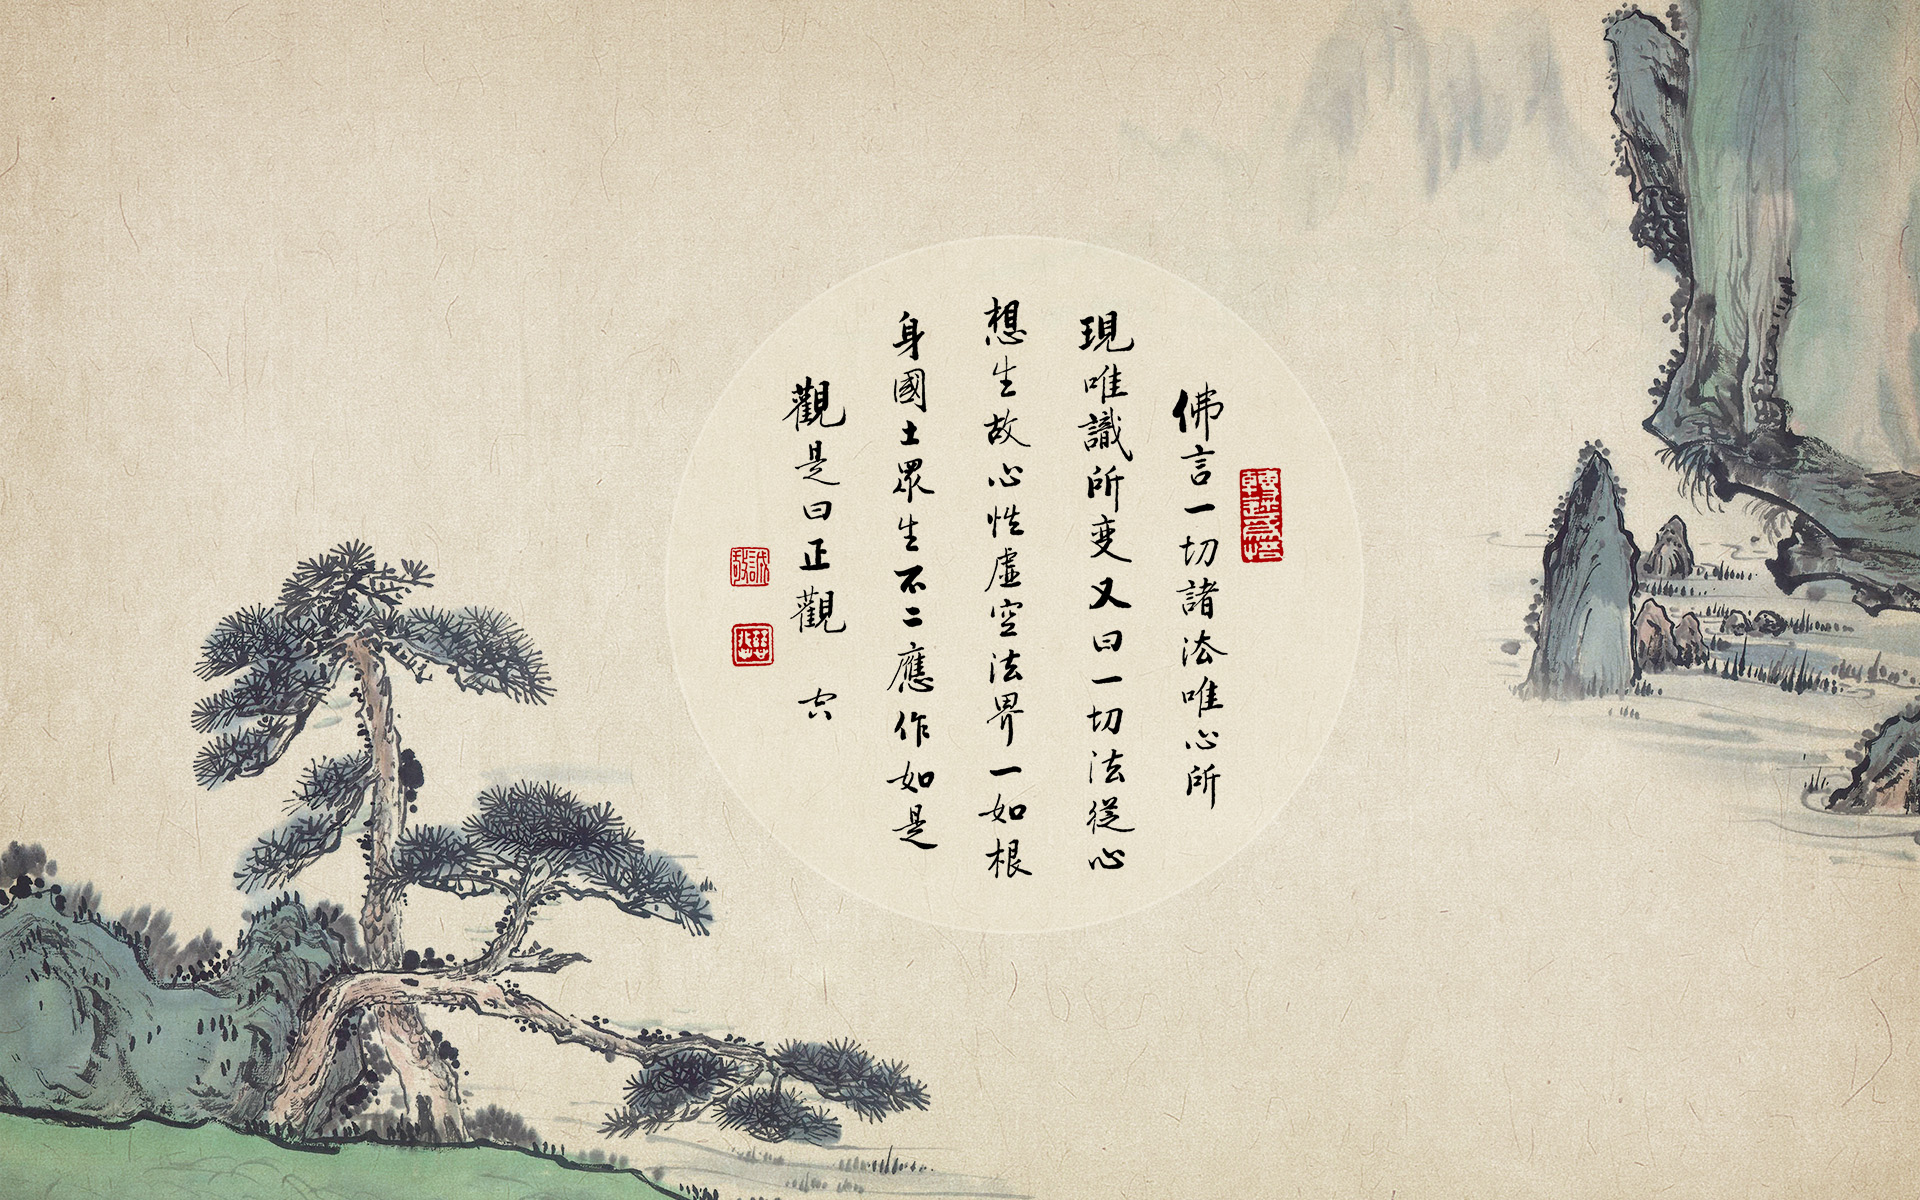 佛言一切諸法唯心所
現唯識所变又曰一切法從心
想生故心性虛空法界一如根
身國土眾生不二應作如是
觀是曰正觀